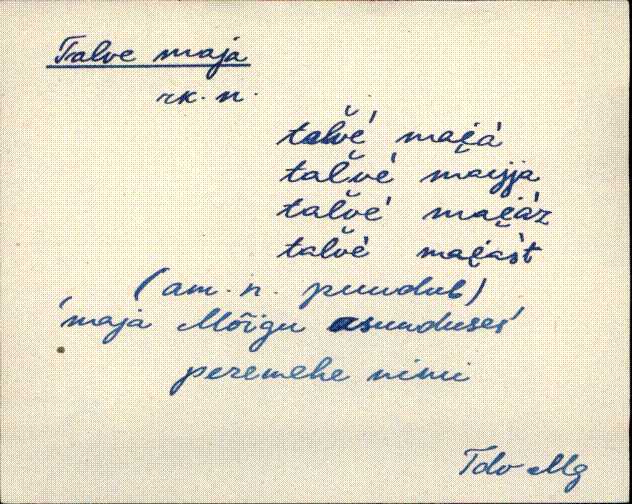 Talve maja
rk. n.
talvĕ́ mai̯à
talvĕ̀ maijja
talvĕ̀ mai̯àz
talvĕ̀ mai̯àst
(am. n. puudub)
'maja Mõigu asunduses'
peremehe nimi
Tdv Mg